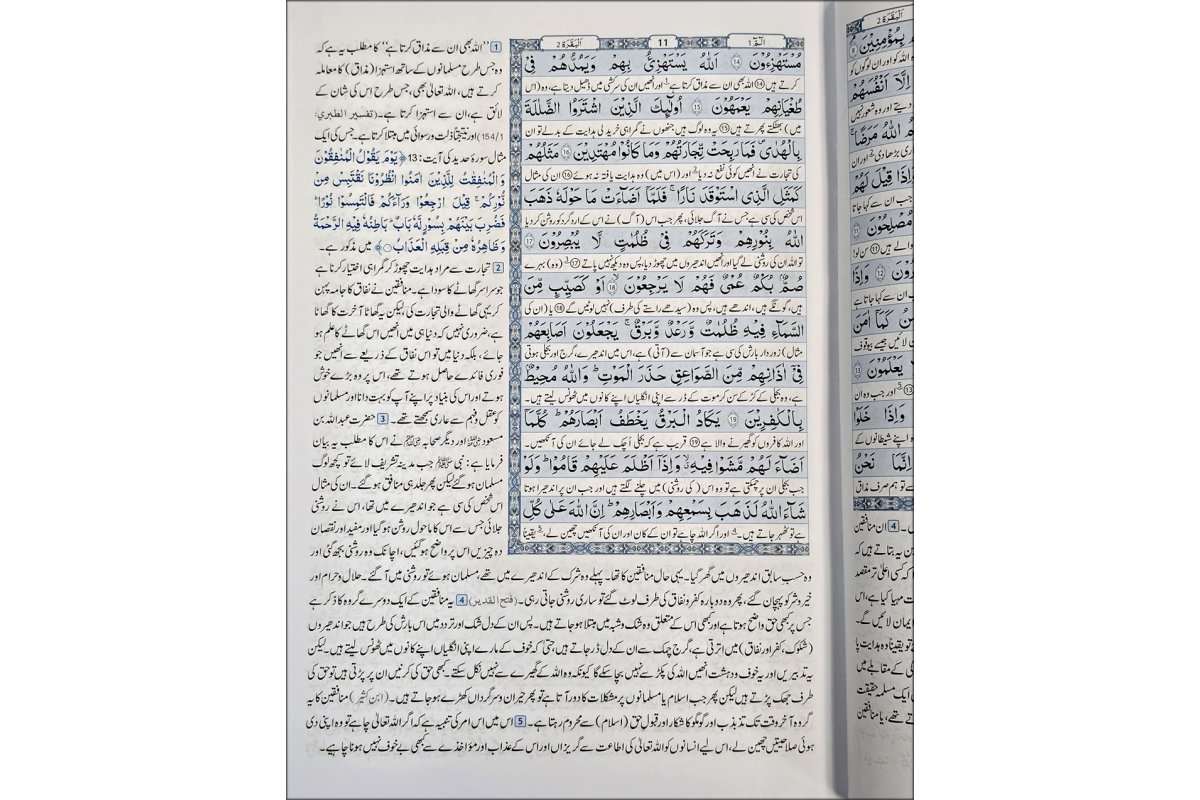 الٓمّٓ ۱
11
اَلْبَقَرَة 2
مُسْتَهْزِءُوْنَ ⑭ اَللّٰهُ يَسْتَهْزِئُ بِهِمْ وَيَمُدُّهُمْ فِيْ
کرتے ہیں ⑭ اللہ بھی ان سے مذاق کرتا ہے 1 اور انھیں ان کی سرکشی میں ڈھیل دیتا ہے، وہ (اس
طُغْيَانِهِمْ يَعْمَهُوْنَ ⑮ اُولٰٓئِكَ الَّذِيْنَ اشْتَرَوُا الضَّلٰلَةَ
میں) بھٹکتے پھرتے ہیں ⑮ یہ وہ لوگ ہیں جنھوں نے گمراہی خرید لی ہدایت کے بدلے تو ان
بِالْهُدٰى ۪ فَمَا رَبِحَتْ تِّجَارَتُهُمْ وَمَا كَانُوْا مُهْتَدِيْنَ ⑯ مَثَلُهُمْ
کی تجارت نے انھیں کوئی نفع نہ دیا 2 اور (اس میں) وہ ہدایت یافتہ نہ ہوئے ⑯ ان کی مثال
كَمَثَلِ الَّذِي اسْتَوْقَدَ نَارًا ۚ فَلَمَّآ اَضَآءَتْ مَا حَوْلَهٗ ذَهَبَ
اس شخص کی سی ہے جس نے آگ جلائی، پھر جب اس (آگ) نے اس کے ارد گرد کو روشن کر دیا
اللّٰهُ بِنُوْرِهِمْ وَتَرَكَهُمْ فِيْ ظُلُمٰتٍ لَّا يُبْصِرُوْنَ ⑰
تو اللہ ان کی روشنی لے گیا اور انھیں اندھیروں میں چھوڑ دیا، پس وہ دیکھ نہیں پاتے ⑰ 3 (وہ) بہرے
صُمٌّۢ بُكْمٌ عُمْيٌ فَهُمْ لَا يَرْجِعُوْنَ ⑱ اَوْ كَصَيِّبٍ مِّنَ
ہیں، گونگے ہیں، اندھے ہیں، پس وہ (سیدھے راستے کی طرف) نہیں لوٹیں گے ⑱ یا (ان کی
السَّمَآءِ فِيْهِ ظُلُمٰتٌ وَّرَعْدٌ وَّبَرْقٌ ۚ يَجْعَلُوْنَ اَصَابِعَهُمْ
مثال) زوردار بارش کی سی ہے جو آسمان سے (آتی) ہے، اس میں اندھیرے، گرج اور بجلی ہوتی
فِيْٓ اٰذَانِهِمْ مِّنَ الصَّوَاعِقِ حَذَرَ الْمَوْتِ ؕ وَاللّٰهُ مُحِيْطٌۢ
ہے، وہ بجلی کے کڑکے سن کر موت کے ڈر سے اپنی انگلیاں اپنے کانوں میں ٹھونس لیتے ہیں۔
بِالْكٰفِرِيْنَ ⑲ يَكَادُ الْبَرْقُ يَخْطَفُ اَبْصَارَهُمْ ؕ كُلَّمَآ
اور اللہ کافروں کو گھیرنے والا ہے ⑲ قریب ہے کہ بجلی اچک لے جائے ان کی آنکھیں۔
اَضَآءَ لَهُمْ مَّشَوْا فِيْهِ ۙ وَاِذَآ اَظْلَمَ عَلَيْهِمْ قَامُوْا ؕ وَلَوْ
جب بجلی ان پر چمکتی ہے تو وہ اس (کی روشنی) میں چلنے لگتے ہیں اور جب ان پر اندھیرا ہوتا
شَآءَ اللّٰهُ لَذَهَبَ بِسَمْعِهِمْ وَاَبْصَارِهِمْ ؕ اِنَّ اللّٰهَ عَلٰى كُلِّ
ہے تو ٹھہر جاتے ہیں۔ 4 اور اگر اللہ چاہے تو ان کے کان اور ان کی آنکھیں چھین لے، 5 یقیناً
1 ’’اللہ بھی ان سے مذاق کرتا ہے‘‘ کا مطلب یہ ہے کہ
وہ جس طرح مسلمانوں کے ساتھ استہزا (مذاق) کا معاملہ
کرتے ہیں، اللہ تعالیٰ بھی، جس طرح اس کی شان کے
لائق ہے، ان سے استہزا کرتا ہے۔ (تفسیر الطبري:
154/1) اور نتیجتاً ذلت و رسوائی میں مبتلا کرتا ہے۔ جس کی ایک
مثال سورۂ حدید کی آیت: 13 ﴿يَوْمَ يَقُوْلُ الْمُنٰفِقُوْنَ
وَالْمُنٰفِقٰتُ لِلَّذِيْنَ اٰمَنُوا انْظُرُوْنَا نَقْتَبِسْ مِنْ
نُّوْرِكُمْ ۚ قِيْلَ ارْجِعُوْا وَرَآءَكُمْ فَالْتَمِسُوْا نُوْرًا ؕ
فَضُرِبَ بَيْنَهُمْ بِسُوْرٍ لَّهٗ بَابٌ ؕ بَاطِنُهٗ فِيْهِ الرَّحْمَةُ
وَظَاهِرُهٗ مِنْ قِبَلِهِ الْعَذَابُ ○﴾ میں مذکور ہے۔
2 تجارت سے مراد ہدایت چھوڑ کر گمراہی اختیار کرنا ہے
جو سراسر گھاٹے کا سودا ہے۔ منافقین نے نفاق کا جامہ پہن
کر یہی گھاٹے والی تجارت کی، لیکن یہ گھاٹا آخرت کا گھاٹا
ہے، ضروری نہیں کہ دنیا ہی میں انھیں اس گھاٹے کا علم ہو
جائے، بلکہ دنیا میں تو اس نفاق کے ذریعے سے انھیں جو
فوری فائدے حاصل ہوتے تھے، اس پر وہ بڑے خوش
ہوتے اور اس کی بنیاد پر اپنے آپ کو بہت دانا اور مسلمانوں
کو عقل و فہم سے عاری سمجھتے تھے۔ 3 حضرت عبداللہ بن
مسعود رضی اللہ عنہ اور دیگر صحابہ رضی اللہ عنہم نے اس کا مطلب یہ بیان
فرمایا ہے: نبی ﷺ جب مدینہ تشریف لائے تو کچھ لوگ
مسلمان ہو گئے لیکن پھر جلد ہی منافق ہو گئے۔ ان کی مثال
اس شخص کی سی ہے جو اندھیرے میں تھا، اس نے روشنی
جلائی جس سے اس کا ماحول روشن ہو گیا اور مفید اور نقصان
دہ چیزیں اس پر واضح ہو گئیں، اچانک وہ روشنی بجھ گئی اور
وہ حسب سابق اندھیروں میں گھر گیا۔ یہی حال منافقین کا تھا۔ پہلے وہ شرک کے اندھیرے میں تھے، مسلمان ہوئے تو روشنی میں آ گئے۔ حلال و حرام اور
خیر و شر کو پہچان گئے، پھر وہ دوبارہ کفر و نفاق کی طرف لوٹ گئے تو ساری روشنی جاتی رہی۔ (فتح القدیر) 4 یہ منافقین کے ایک دوسرے گروہ کا ذکر ہے
جس پر کبھی حق واضح ہوتا ہے اور کبھی اس کے متعلق وہ شک و شبہ میں مبتلا ہو جاتے ہیں۔ پس ان کے دل شک اور تردد میں اس بارش کی طرح ہیں جو اندھیروں
(شکوک، کفر اور نفاق) میں اترتی ہے، گرج چمک سے ان کے دل ڈر جاتے ہیں حتیٰ کہ خوف کے مارے اپنی انگلیاں اپنے کانوں میں ٹھونس لیتے ہیں۔ لیکن
یہ تدبیریں اور یہ خوف و دہشت انھیں اللہ کی پکڑ سے نہیں بچا سکے گا کیونکہ وہ اللہ کے گھیرے سے نہیں نکل سکتے۔ کبھی حق کی کرنیں ان پر پڑتی ہیں تو حق کی
طرف جھک پڑتے ہیں لیکن پھر جب اسلام یا مسلمانوں پر مشکلات کا دور آتا ہے تو پھر حیران و سرگرداں کھڑے ہو جاتے ہیں۔ (ابن کثیر) منافقین کا یہ
گروہ آخر وقت تک تذبذب اور گومگو کا شکار اور قبول حق (اسلام) سے محروم رہتا ہے۔ 5 اس میں اس امر کی تنبیہ ہے کہ اگر اللہ تعالیٰ چاہے تو وہ اپنی دی
ہوئی صلاحیتیں چھین لے، اس لیے انسانوں کو اللہ تعالیٰ کی اطاعت سے گریزاں اور اس کے عذاب اور مؤاخذے سے کبھی بے خوف نہیں ہونا چاہیے۔